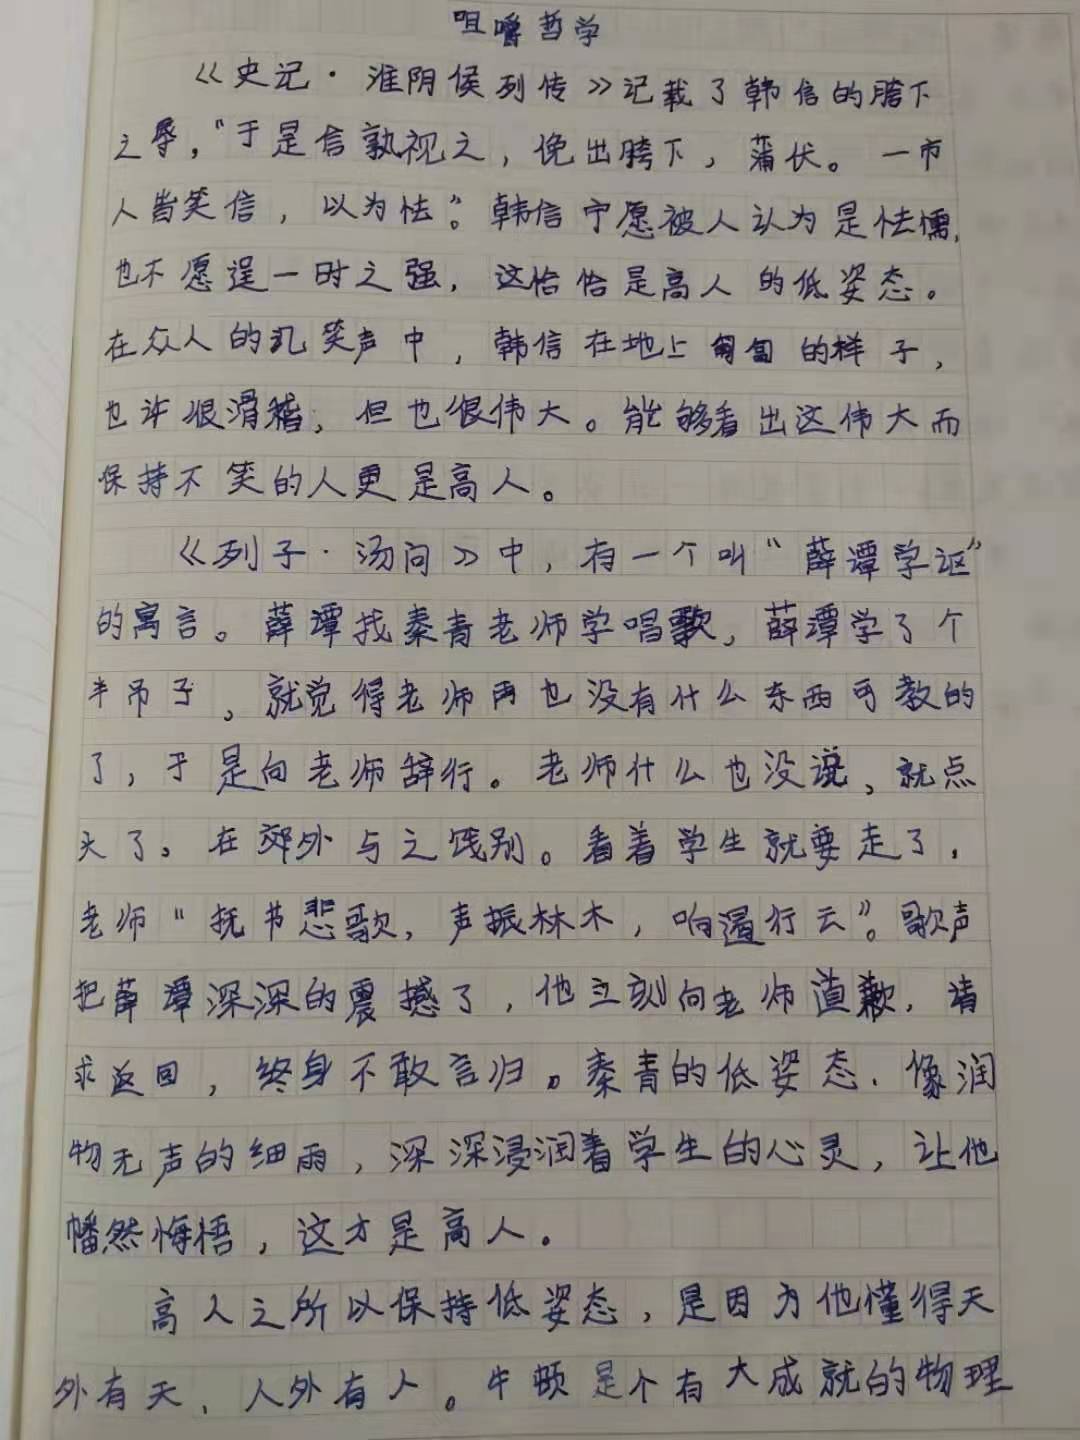 咀嚼哲学
《史记·淮阴侯列传》记载了韩信的胯下
之辱，“于是信孰视之，俛出胯下，蒲伏。一市
人皆笑信，以为怯”。韩信宁愿被人认为是怯懦，
也不愿逞一时之强，这恰恰是高人的低姿态。
在众人的讥笑声中，韩信在地上匍匐的样子，
也许很滑稽，但也很伟大。能够看出这伟大而
保持不笑的人更是高人。
《列子·汤问》中，有一个叫“薛谭学讴”
的寓言。薛谭找秦青老师学唱歌，薛谭学了个
半吊子，就觉得老师再也没有什么东西可教的
了，于是向老师辞行。老师什么也没说，就点
头了。在郊外与之饯别。看着学生就要走了，
老师“抚节悲歌，声振林木，响遏行云”。歌声
把薛谭深深的震撼了，他立刻向老师道歉，请
求返回，终身不敢言归。秦青的低姿态，像润
物无声的细雨，深深浸润着学生的心灵，让他
幡然悔悟，这才是高人。
高人之所以保持低姿态，是因为他懂得天
外有天、人外有人。牛顿是个有大成就的物理